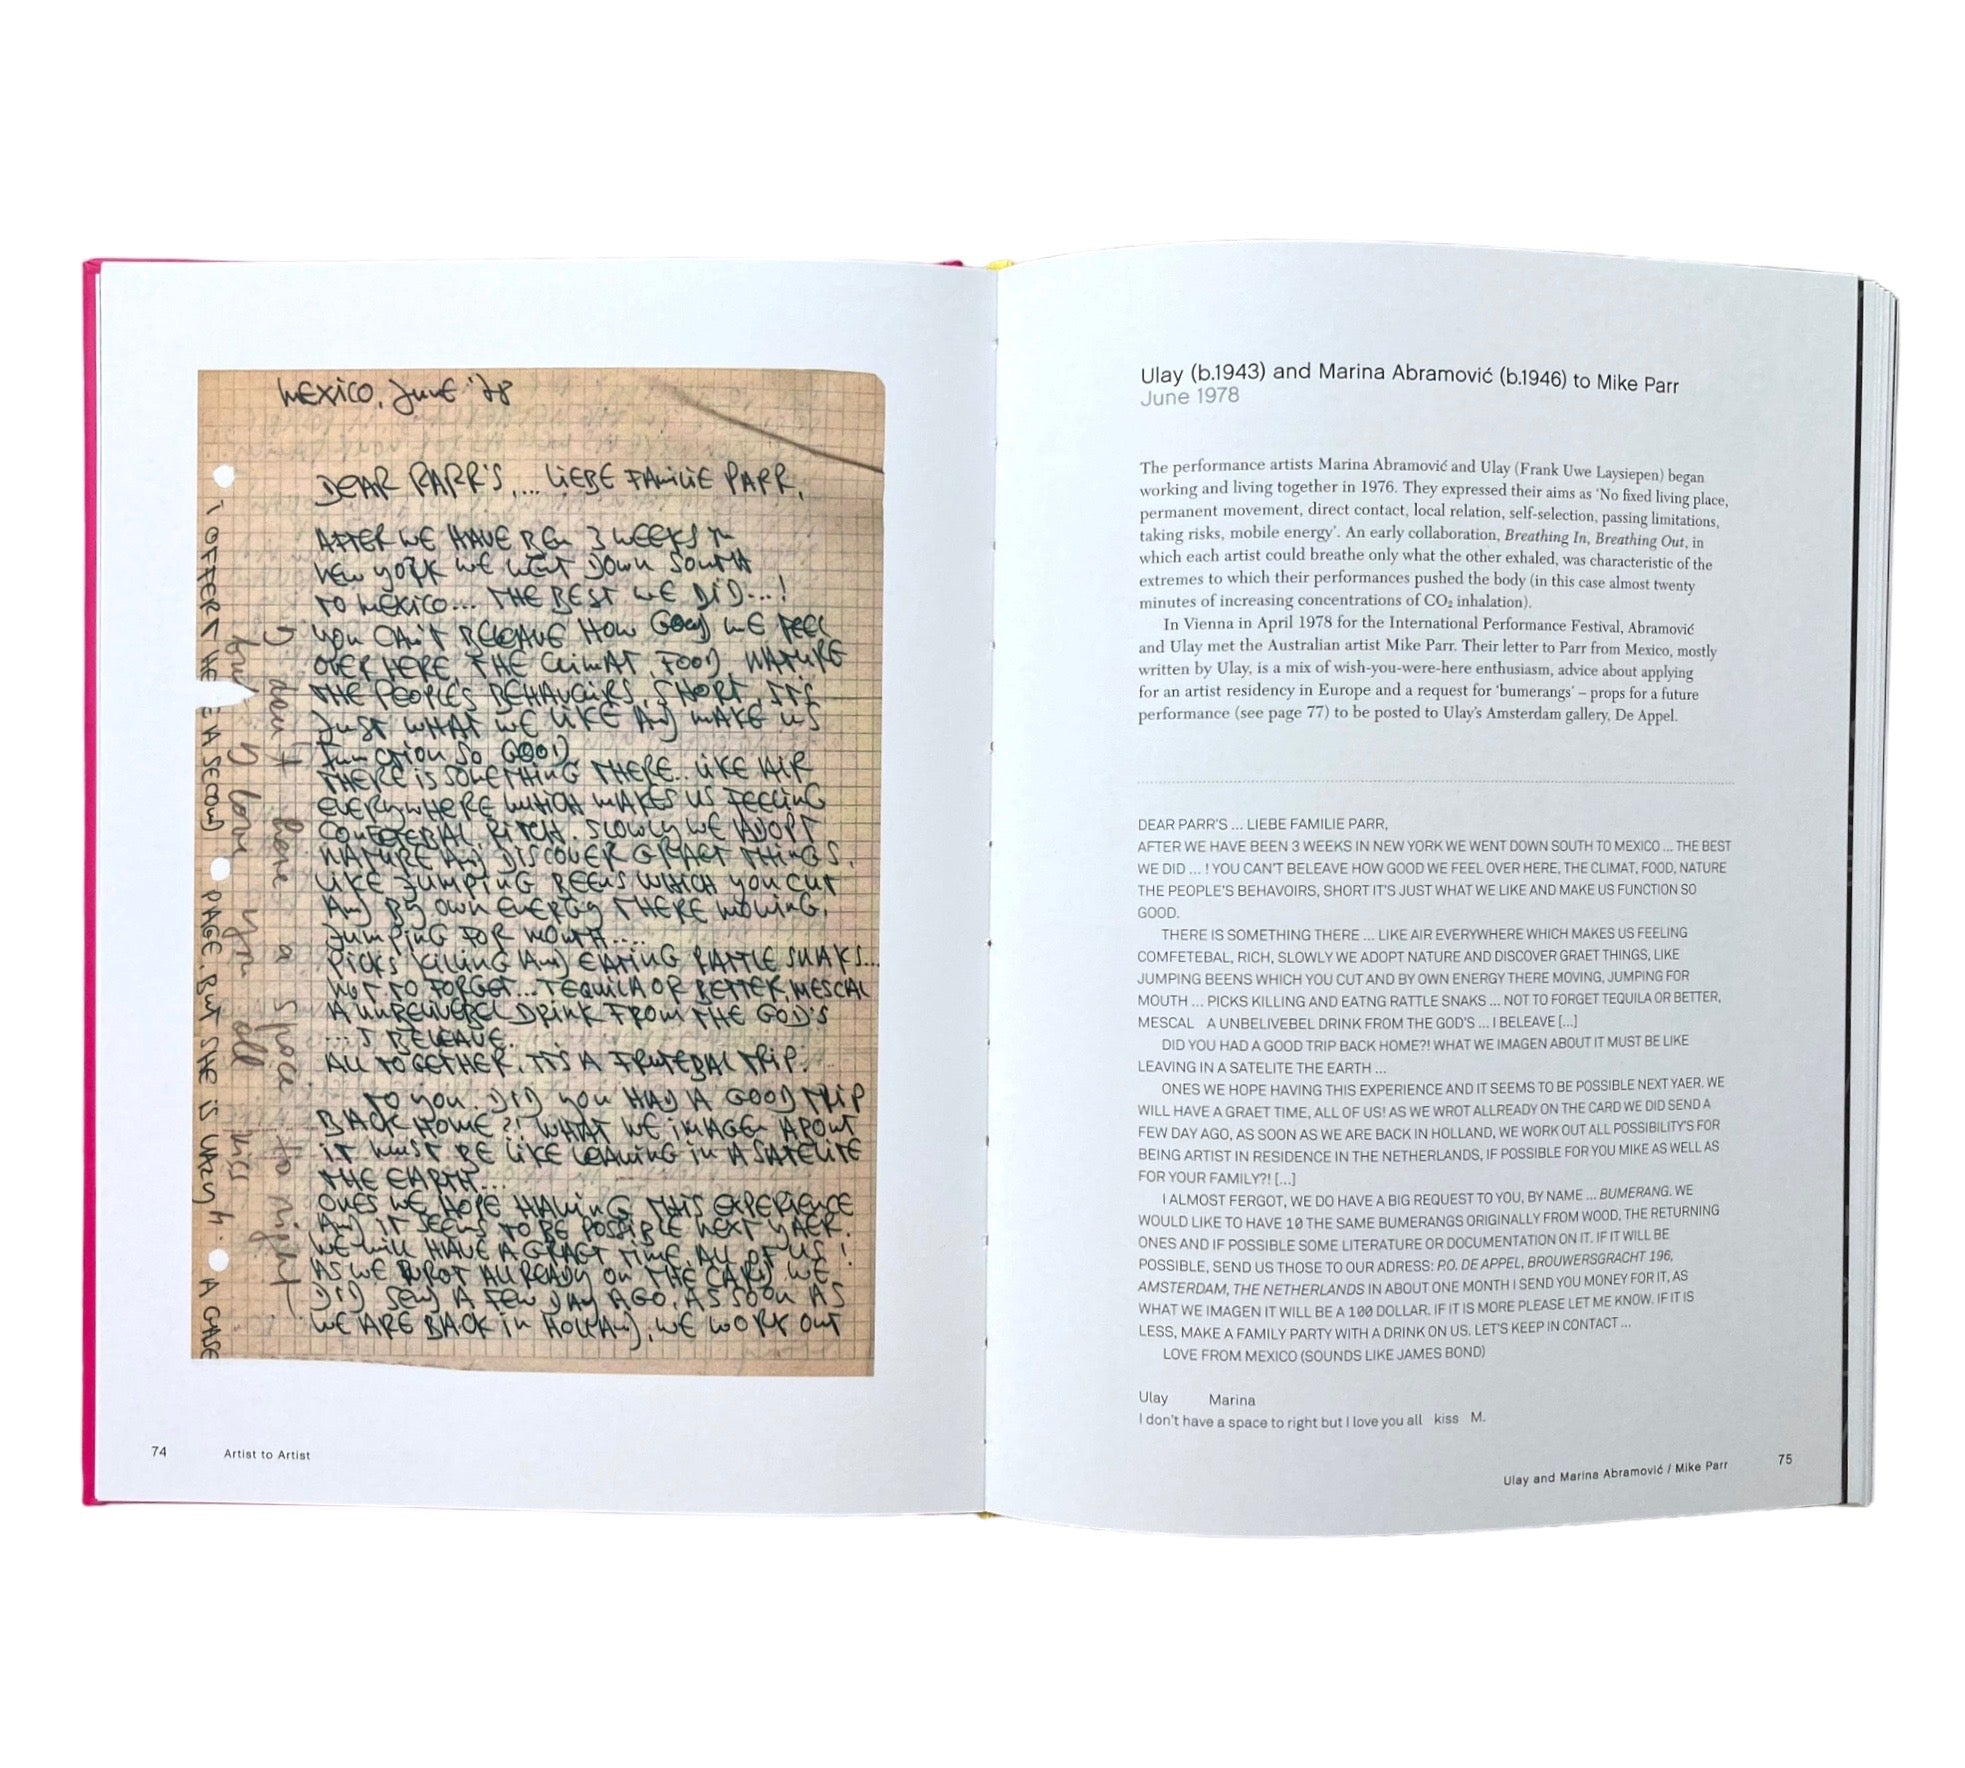 MEXICO, JUNE '78
DEAR PARR'S, ... LIEBE FAMILIE PARR,
AFTER WE HAVE BEN 3 WEEKS IN
NEW YORK WE WENT DOWN SOUTH
TO MEXICO... THE BEST WE DID...!
YOU CAN'T BELEAVE HOW GOOD WE FEEL
OVER HERE, THE CLIMAT, FOOD, NATURE
THE PEOPLE'S BEHAVOIRS, SHORT, IT'S
JUST WHAT WE LIKE AND MAKE US
FUNCTION SO GOOD.
THERE IS SOMETHING THERE.. LIKE AIR
EVERYWHERE WHICH MAKES US FEELING
COMFETEBAL, RITCH. SLOWLY WE ADOPT
NATURE AND DISCOVER GRAET THINGS,
LIKE JUMPING BEENS WHICH YOU CUT
AND BY OWN ENERGY THERE MOVING,
JUMPING FOR MONTH....
PICKS KILLING AND EATING RATTLE SNAKS...
NOT TO FORGET... TEQUILA OR BETTER, MESCAL
A UNBELIVEBEL DRINK FROM THE GOD'S
... I BELEAVE.
ALL TOGETHER, IT'S A TRIP.
TO YOU. DID YOU HAD A GOOD TRIP
BACK HOME?! WHAT WE IMAGEN ABOUT
IT MUST BE LIKE LEAVING IN A SATELITE
THE EARTH...
ONES WE HOPE HAVING THIS EXPERIENCE
AND IT SEEMS TO BE POSSIBLE NEXT YAER.
WE WILL HAVE A GRAET TIME, ALL OF US!
AS WE WROT ALLREADY ON THE CARD WE
DID SEND A FEW DAY AGO, AS SOON AS
WE ARE BACK IN HOLLAND, WE WORK OUT
I don't have a space to right
but I love you all kiss
I OFFERT HER A SECOND PAGE, BUT SHE IS LAZY
74 Artist to Artist
Ulay (b.1943) and Marina Abramović (b.1946) to Mike Parr
June 1978
The performance artists Marina Abramović and Ulay (Frank Uwe Laysiepen) began
working and living together in 1976. They expressed their aims as 'No fixed living place,
permanent movement, direct contact, local relation, self-selection, passing limitations,
taking risks, mobile energy'. An early collaboration, Breathing In, Breathing Out, in
which each artist could breathe only what the other exhaled, was characteristic of the
extremes to which their performances pushed the body (in this case almost twenty
minutes of increasing concentrations of CO₂ inhalation).
In Vienna in April 1978 for the International Performance Festival, Abramović
and Ulay met the Australian artist Mike Parr. Their letter to Parr from Mexico, mostly
written by Ulay, is a mix of wish-you-were-here enthusiasm, advice about applying
for an artist residency in Europe and a request for 'bumerangs' – props for a future
performance (see page 77) to be posted to Ulay's Amsterdam gallery, De Appel.
DEAR PARR'S ... LIEBE FAMILIE PARR,
AFTER WE HAVE BEEN 3 WEEKS IN NEW YORK WE WENT DOWN SOUTH TO MEXICO ... THE BEST
WE DID ... ! YOU CAN'T BELEAVE HOW GOOD WE FEEL OVER HERE, THE CLIMAT, FOOD, NATURE
THE PEOPLE'S BEHAVOIRS, SHORT IT'S JUST WHAT WE LIKE AND MAKE US FUNCTION SO
GOOD.
THERE IS SOMETHING THERE ... LIKE AIR EVERYWHERE WHICH MAKES US FEELING
COMFETEBAL, RICH, SLOWLY WE ADOPT NATURE AND DISCOVER GRAET THINGS, LIKE
JUMPING BEENS WHICH YOU CUT AND BY OWN ENERGY THERE MOVING, JUMPING FOR
MOUTH ... PICKS KILLING AND EATNG RATTLE SNAKS ... NOT TO FORGET TEQUILA OR BETTER,
MESCAL A UNBELIVEBEL DRINK FROM THE GOD'S ... I BELEAVE [...]
DID YOU HAD A GOOD TRIP BACK HOME?! WHAT WE IMAGEN ABOUT IT MUST BE LIKE
LEAVING IN A SATELITE THE EARTH ...
ONES WE HOPE HAVING THIS EXPERIENCE AND IT SEEMS TO BE POSSIBLE NEXT YAER. WE
WILL HAVE A GRAET TIME, ALL OF US! AS WE WROT ALLREADY ON THE CARD WE DID SEND A
FEW DAY AGO, AS SOON AS WE ARE BACK IN HOLLAND, WE WORK OUT ALL POSSIBILITY'S FOR
BEING ARTIST IN RESIDENCE IN THE NETHERLANDS, IF POSSIBLE FOR YOU MIKE AS WELL AS
FOR YOUR FAMILY?! [...]
I ALMOST FERGOT, WE DO HAVE A BIG REQUEST TO YOU, BY NAME ... BUMERANG. WE
WOULD LIKE TO HAVE 10 THE SAME BUMERANGS ORIGINALLY FROM WOOD, THE RETURNING
ONES AND IF POSSIBLE SOME LITERATURE OR DOCUMENTATION ON IT. IF IT WILL BE
POSSIBLE, SEND US THOSE TO OUR ADRESS: P.O. DE APPEL, BROUWERSGRACHT 196,
AMSTERDAM, THE NETHERLANDS IN ABOUT ONE MONTH I SEND YOU MONEY FOR IT, AS
WHAT WE IMAGEN IT WILL BE A 100 DOLLAR. IF IT IS MORE PLEASE LET ME KNOW. IF IT IS
LESS, MAKE A FAMILY PARTY WITH A DRINK ON US. LET'S KEEP IN CONTACT ...
LOVE FROM MEXICO (SOUNDS LIKE JAMES BOND)
Ulay Marina
I don't have a space to right but I love you all kiss M.
Ulay and Marina Abramović / Mike Parr 75